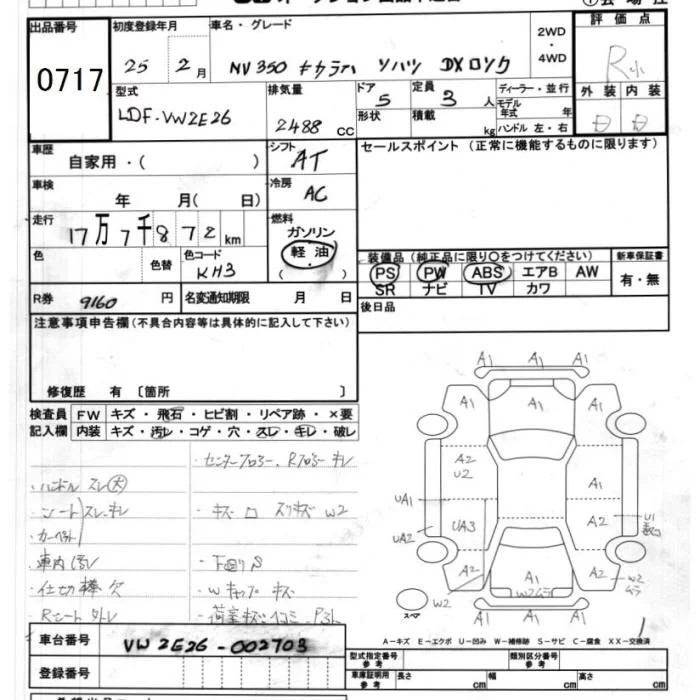 出品番号 初度登録年月 車名・グレード 2WD・4WD 評価点
0717 25年 2月 NV350 キャラバン DXロング R
型式 排気量 ドア 定員 ディーラー・並行 外装 内装
LDF-VW2E26 2488 CC 5 3人 モデル年式 年 D D
形状 積載 kg ハンドル 左・右
車歴 シフト セールスポイント (正常に機能するものに限ります)
自家用・( ) AT
車検 冷房
年 月( 日) AC
走行 燃料
17万7千872km ガソリン
色 色替 色コード 軽油 装備品 (純正品に限り○をつけてください) 新車保証書
KH3 ( ) PS PW ABS エアB AW 有・無
SR ナビ TV カワ
R券 9160円 名変通知期限 月 日 後日品
注意事項申告欄 (不具合内容等は具体的に記入して下さい)
修復歴 有 〔箇所 〕
検査員 FW キズ・飛石・ヒビ割・リペア跡・×要
記入欄 内装 キズ・汚レ・コゲ・穴・スレ・キレ・破レ
・ハンドル スレ 大
・シート スレ、キレ
・カーペット
・車内 汚レ
・仕切棒 欠
・センターフロアー、Rフロアー キレ
・下回りS
・Wキャップ キズ
A1 A1 A1
A1 A1 A1
A2 U2 A1
UA1 A2 U1
UA2 UA3
A2 A1 A2 W2
W2
スペア
A1 A1 A1
A-キズ E-エクボ U-凹み W-補修跡 S-サビ C-腐食 XX-交換済
車台番号 VW2E26-002703
登録番号
型式指定番号 参考 類別区分番号 参考
車庫証明用 参考 長さ cm 幅 cm 高さ cm